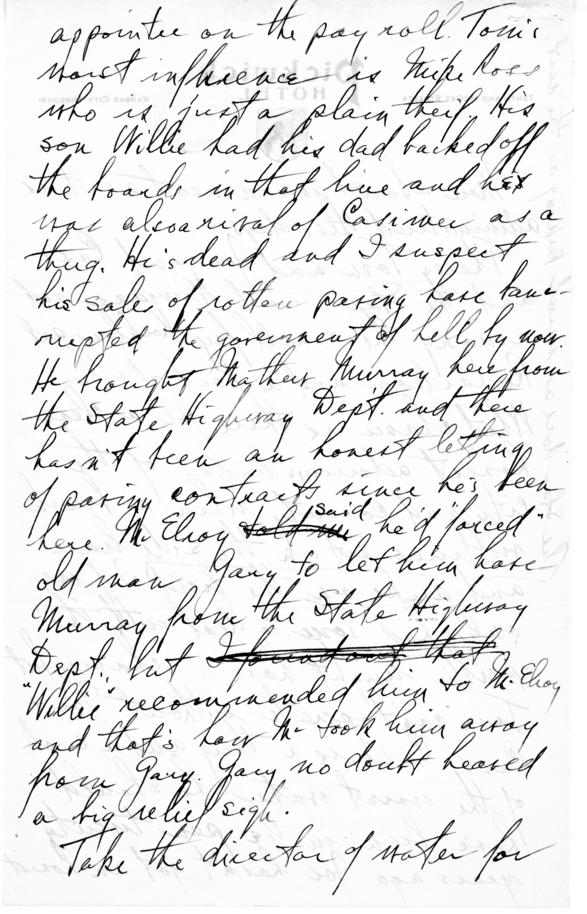 Pickwick
HOTEL
KANSAS CITY
appointee on the pay roll. Tom's
worst influence is Mike Ross
who is just a plain theif. His
son Willie had his dad backed off
the boards in that line and he
was also a rival of Casimer as a
thug. He's dead and I suspect
his sales of rotten paving have banc-
rupted the government of hell by now.
He brought Mathew Murray here from
the State Highway Dept. and there
hasn't been an honest letting
of paving contracts since he's been
here. McElroy told me said he'd "forced"
old man Gary to let him have
Murray from the State Highway
Dept., but I found out that
"Willie" recommended him to McElroy
and that's how Mc took him away
from Gary. Gary no doubt heaved
a big relief sigh.
Take the director of water for